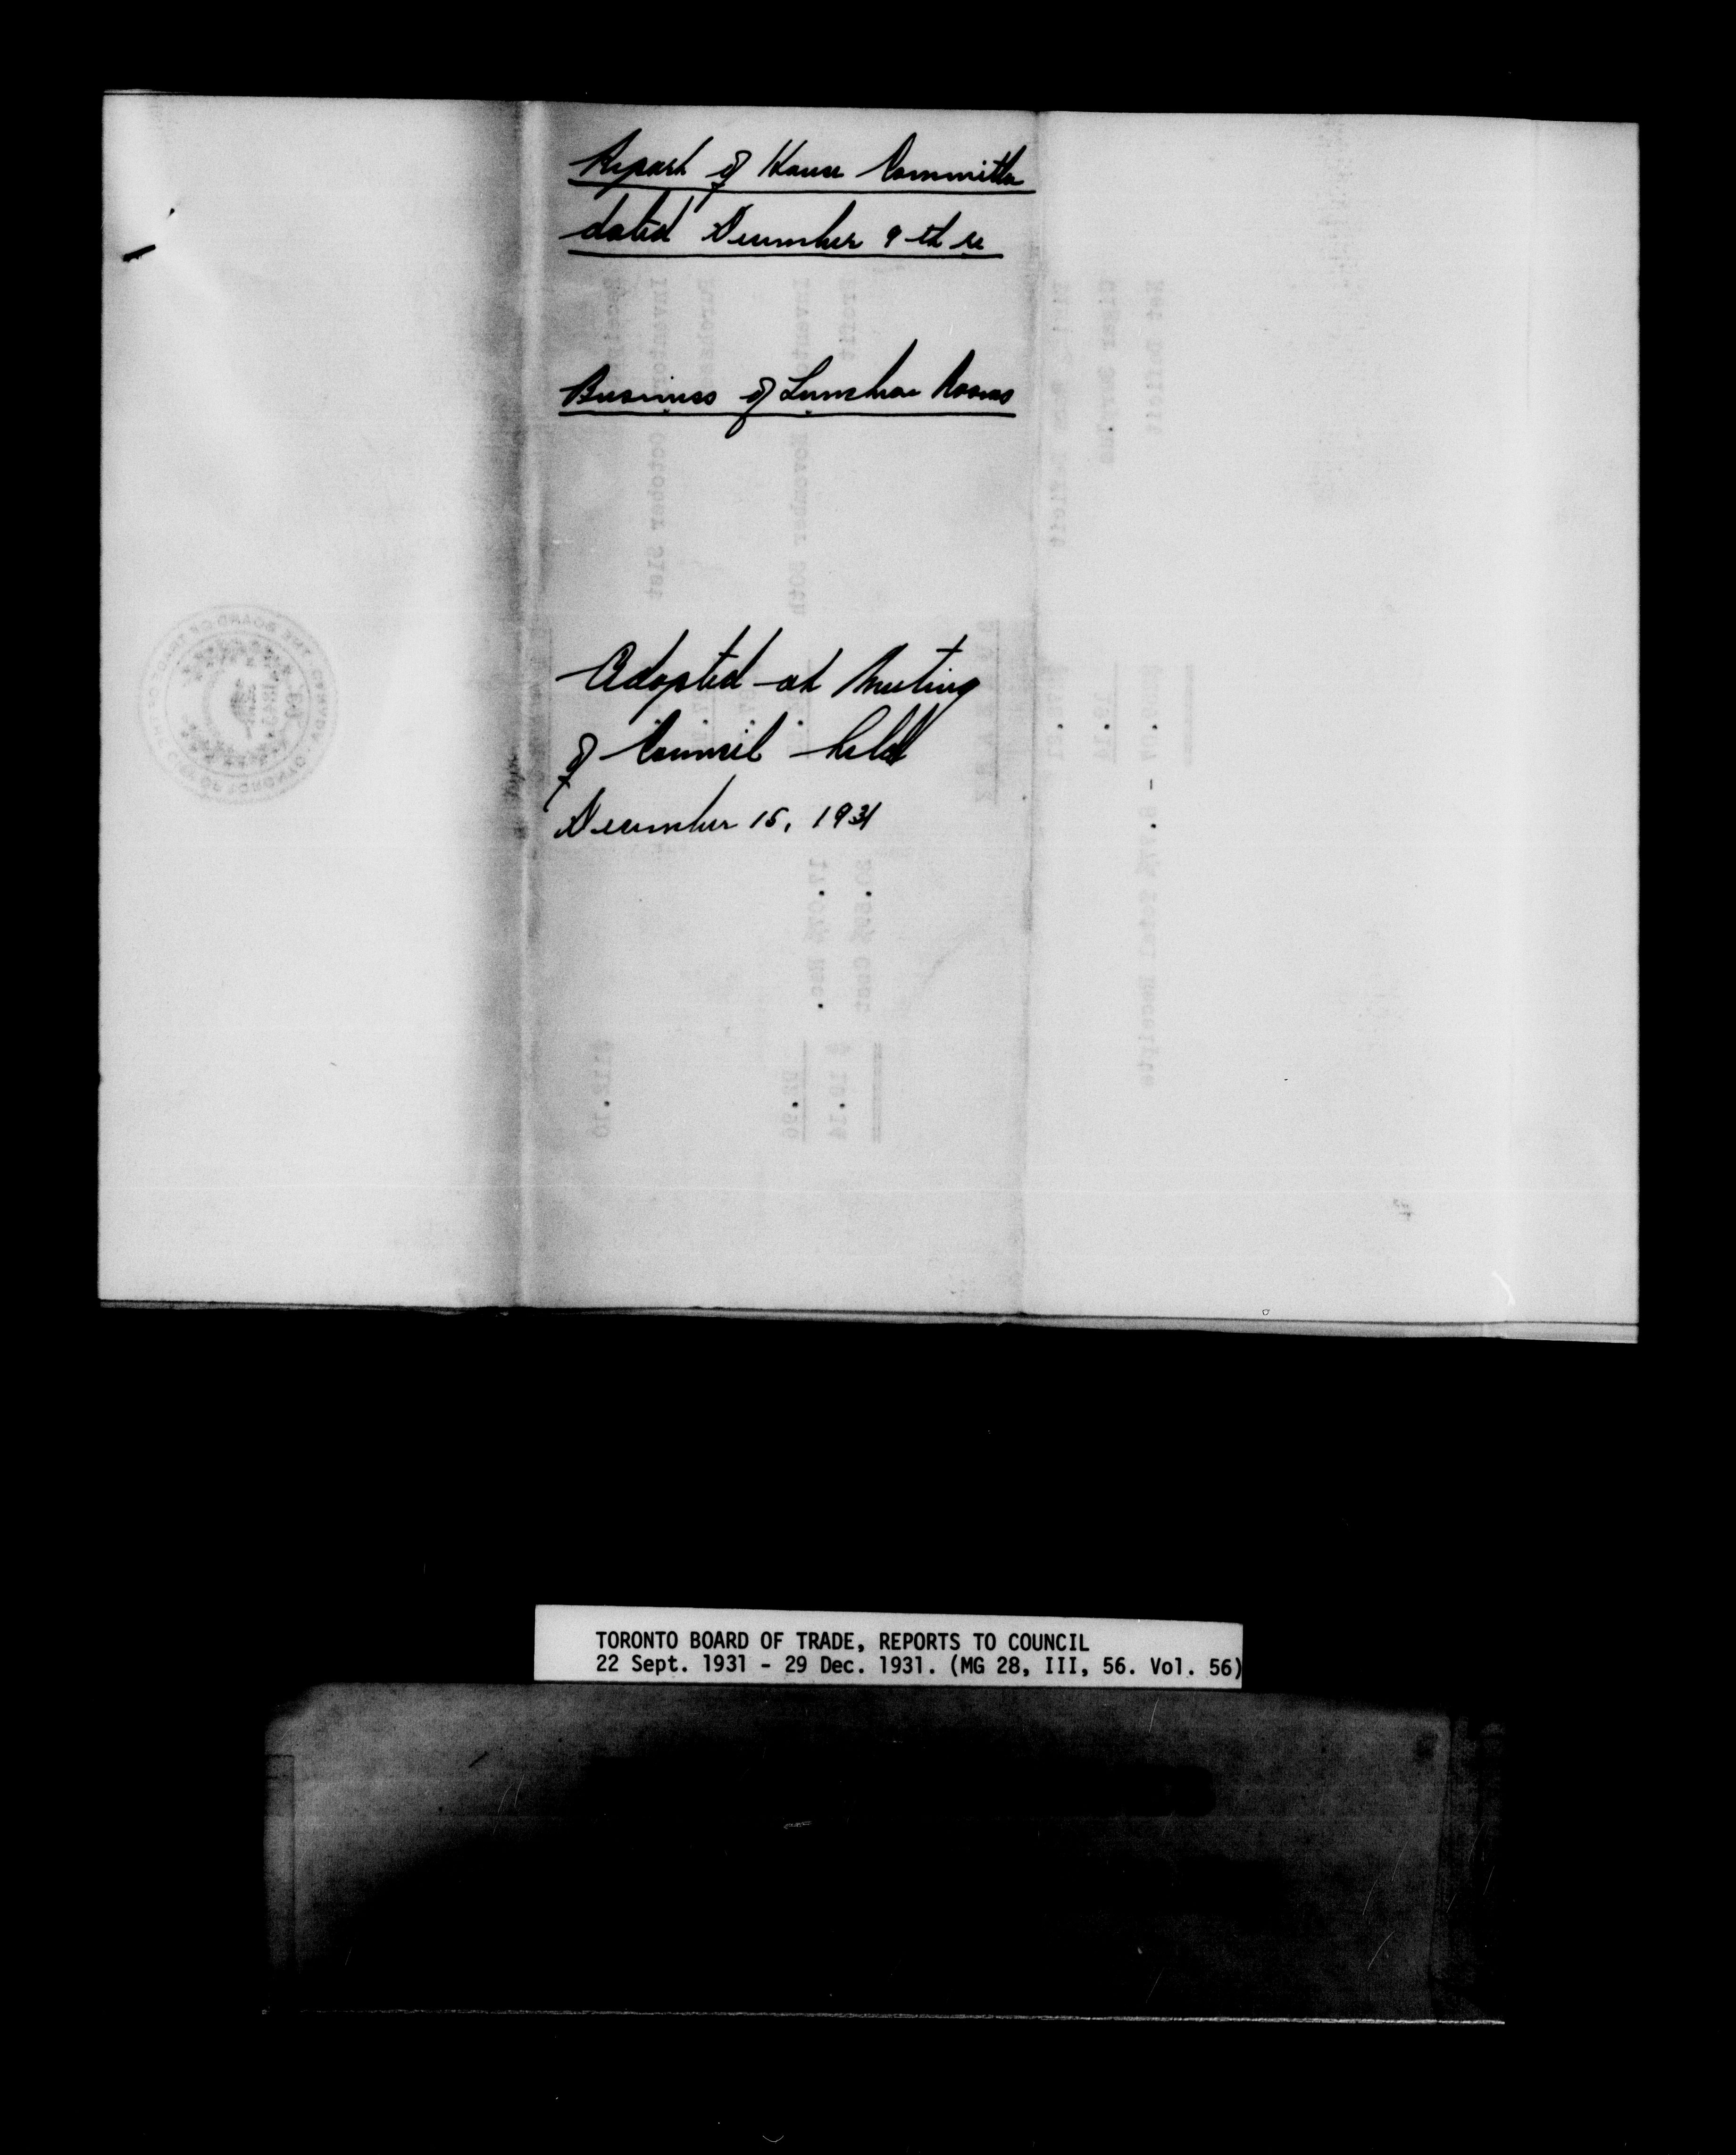 Report of House Committee
dated December 9th re
Business of Luncheon Rooms
Adopted at Meeting
of Council held
December 15, 1931
TORONTO BOARD OF TRADE, REPORTS TO COUNCIL
22 Sept. 1931 - 29 Dec. 1931. (MG 28, III, 56. Vol. 56)